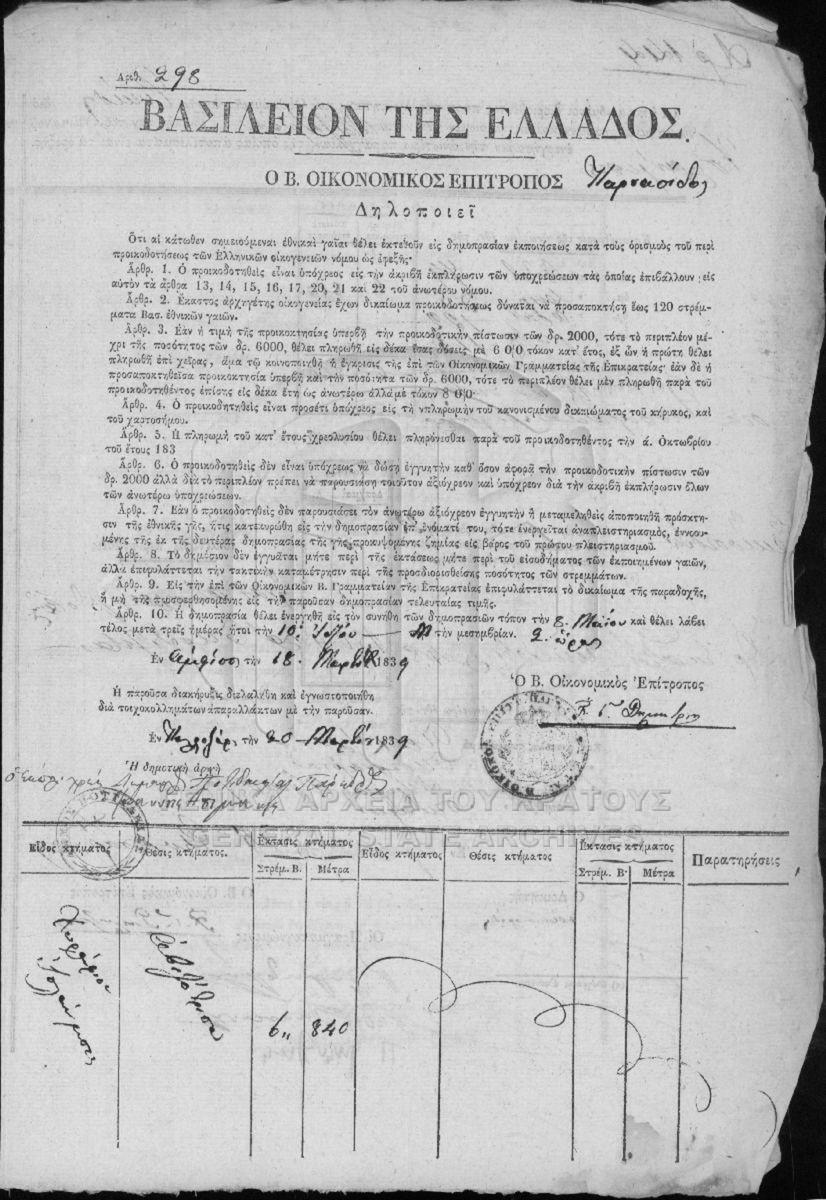 Ἀριθ. 298
ΒΑΣΙΛΕΙΟΝ ΤΗΣ ΕΛΛΑΔΟΣ.
Ο Β. ΟΙΚΟΝΟΜΙΚΟΣ ΕΠΙΤΡΟΠΟΣ Παρνασίδος
Δηλοποιεῖ
Ὅτι αἱ κάτωθεν σημειούμεναι ἐθνικαὶ γαῖαι θέλει ἐκτεθοῦν εἰς δημοπρασίαν ἐκποιήσεως κατὰ τοὺς ὁρισμοὺς τοῦ περὶ
προικοδοτήσεως τῶν Ἑλληνικῶν οἰκογενειῶν νόμου ὡς ἐφεξῆς·
Ἄρθρ. 1. Ὁ προικοδοτηθεὶς εἶναι ὑπόχρεος εἰς τὴν ἀκριβῆ ἐκπλήρωσιν τῶν ὑποχρεώσεων τὰς ὁποίας ἐπιβάλλουν εἰς
αὐτὸν τὰ ἄρθρα 13, 14, 15, 16, 17, 20, 21 καὶ 22 τοῦ ἀνωτέρω νόμου.
Ἄρθρ. 2. Ἕκαστος ἀρχηγέτης οἰκογενείας ἔχων δικαίωμα προικοδοτήσεως δύναται νὰ προσαποκτήσῃ ἕως 120 στρέμ-
ματα Βασ. ἐθνικῶν γαιῶν.
Ἄρθρ. 3. Ἐὰν ἡ τιμὴ τῆς προικοκτησίας ὑπερβῇ τὴν προικοδοτικὴν πίστωσιν τῶν δρ. 2000, τότε τὸ περιπλέον μέ-
χρι τῆς ποσότητος τῶν δρ. 6000, θέλει πληρωθῆ εἰς δέκα ἴσας δόσεις μὲ 6 0)0 τόκον κατ' ἔτος, ἐξ ὧν ἡ πρώτη θέλει
πληρωθῆ ἐπὶ χεῖρας, ἅμα τῷ κοινοποιηθῇ ἡ ἔγκρισις τῆς ἐπὶ τῶν Οἰκονομικῶν Γραμματείας τῆς Ἐπικρατείας· ἐὰν δὲ ἡ
προσαποκτηθεῖσα προικοκτησία ὑπερβῇ καὶ τὴν ποσότητα τῶν δρ. 6000, τότε τὸ περιπλέον θέλει μὲν πληρωθῆ παρὰ τοῦ
προικοδοτηθέντος ἐπίσης εἰς δέκα ἔτη ὡς ἀνωτέρω ἀλλὰ μὲ τόκον 8 0)0·
Ἄρθρ. 4. Ὁ προικοδοτηθεὶς εἶναι προσέτι ὑπόχρεος εἰς τὴν πληρωμὴν τοῦ κανονισμένου δικαιώματος τοῦ κήρυκος, καὶ
τοῦ χαρτοσήμου.
Ἄρθρ. 5. Ἡ πληρωμὴ τοῦ κατ' ἔτους χρεολυσίου θέλει πληρόνεσθαι παρὰ τοῦ προικοδοτηθέντος τὴν ά. Ὀκτωβρίου
τοῦ ἔτους 183
Ἄρθρ. 6. Ὁ προικοδοτηθεὶς δὲν εἶναι ὑπόχρεως νὰ δώσῃ ἐγγυητὴν καθ' ὅσον ἀφορᾷ τὴν προικοδοτικὴν πίστωσιν τῶν
δρ. 2000 ἀλλὰ διὰ τὸ περιπλέον πρέπει νὰ παρουσιάσῃ τοιοῦτον ἀξιόχρεον καὶ ὑπόχρεον διὰ τὴν ἀκριβῆ ἐκπλήρωσιν ὅλων
τῶν ἀνωτέρω ὑποχρεώσεων.
Ἄρθρ. 7. Ἐὰν ὁ προικοδοτηθεὶς δὲν παρουσιάσει τὸν ἀνωτέρω ἀξιόχρεον ἐγγυητὴν ἢ μεταμεληθεὶς ἀποποιηθῇ πρόσκτη-
σιν τῆς ἐθνικῆς γῆς, ἥτις κατεκυρώθη εἰς τὴν δημοπρασίαν ἐπ' ὀνόματί του, τότε ἐνεργεῖται ἀναπλειστηριασμὸς, ἐννοου-
μένης τῆς ἐκ τῆς δευτέρας δημοπρασίας τῆς γῆς προκυψομένης ζημίας εἰς βάρος τοῦ πρώτου πλειστηριασμοῦ.
Ἄρθρ. 8. Τὸ δημόσιον δὲν ἐγγυᾶται μήτε περὶ τῆς ἐκτάσεως μήτε περὶ τοῦ εἰσοδήματος τῶν ἐκποιημένων γαιῶν,
ἀλλὰ ἐπιφυλάττεται τὴν τακτικὴν καταμέτρησιν περὶ τῆς προσδιορισθείσης ποσότητος τῶν στρεμμάτων.
Ἄρθρ. 9. Εἰς τὴν ἐπὶ τῶν Οἰκονομικῶν Β. Γραμματείαν τῆς Ἐπικρατείας ἐπιφυλάττεται τὸ δικαίωμα τῆς παραδοχῆς,
ἢ μὴ τῆς προσφερθησομένης εἰς τὴν παροῦσαν δημοπρασίαν τελευταίας τιμῆς.
Ἄρθρ. 10. Ἡ δημοπρασία θέλει ἐνεργηθῆ εἰς τὸν συνήθη τῶν δημοπρασιῶν τόπον τὴν 8. Μαΐου καὶ θέλει λάβει
τέλος μετὰ τρεῖς ἡμέρας ἤτοι τὴν 10 τὴν μεσημβρίαν. 2. ὥρας
Ἐν Ἀμφίσσῃ τὴν 18. Μαρτίου 1839
Ὁ Β. Οἰκονομικὸς Ἐπίτροπος
Ἡ παροῦσα διακήρυξις διελαλήθη καὶ ἐγνωστοποιήθη
διὰ τοιχοκολλημάτων ἀπαραλλάκτων μὲ τὴν παροῦσαν.
Ἐν τὴν 20 Μαρτίου 1839
Ἡ δημοτικὴ ἀρχὴ
ΓΕΝΙΚΑ ΑΡΧΕΙΑ ΤΟΥ ΚΡΑΤΟΥΣ
GENERAL STATE ARCHIVES
Εἶδος κτήματος Θέσις κτήματος. Ἔκτασις κτήματος Εἶδος κτήματος Θέσις κτήματος. Ἔκτασις κτήματος Παρατηρήσεις
Στρέμ. Β. Μέτρα Στρέμ. Β· Μέτρα
Χωράφιον
6,, 840